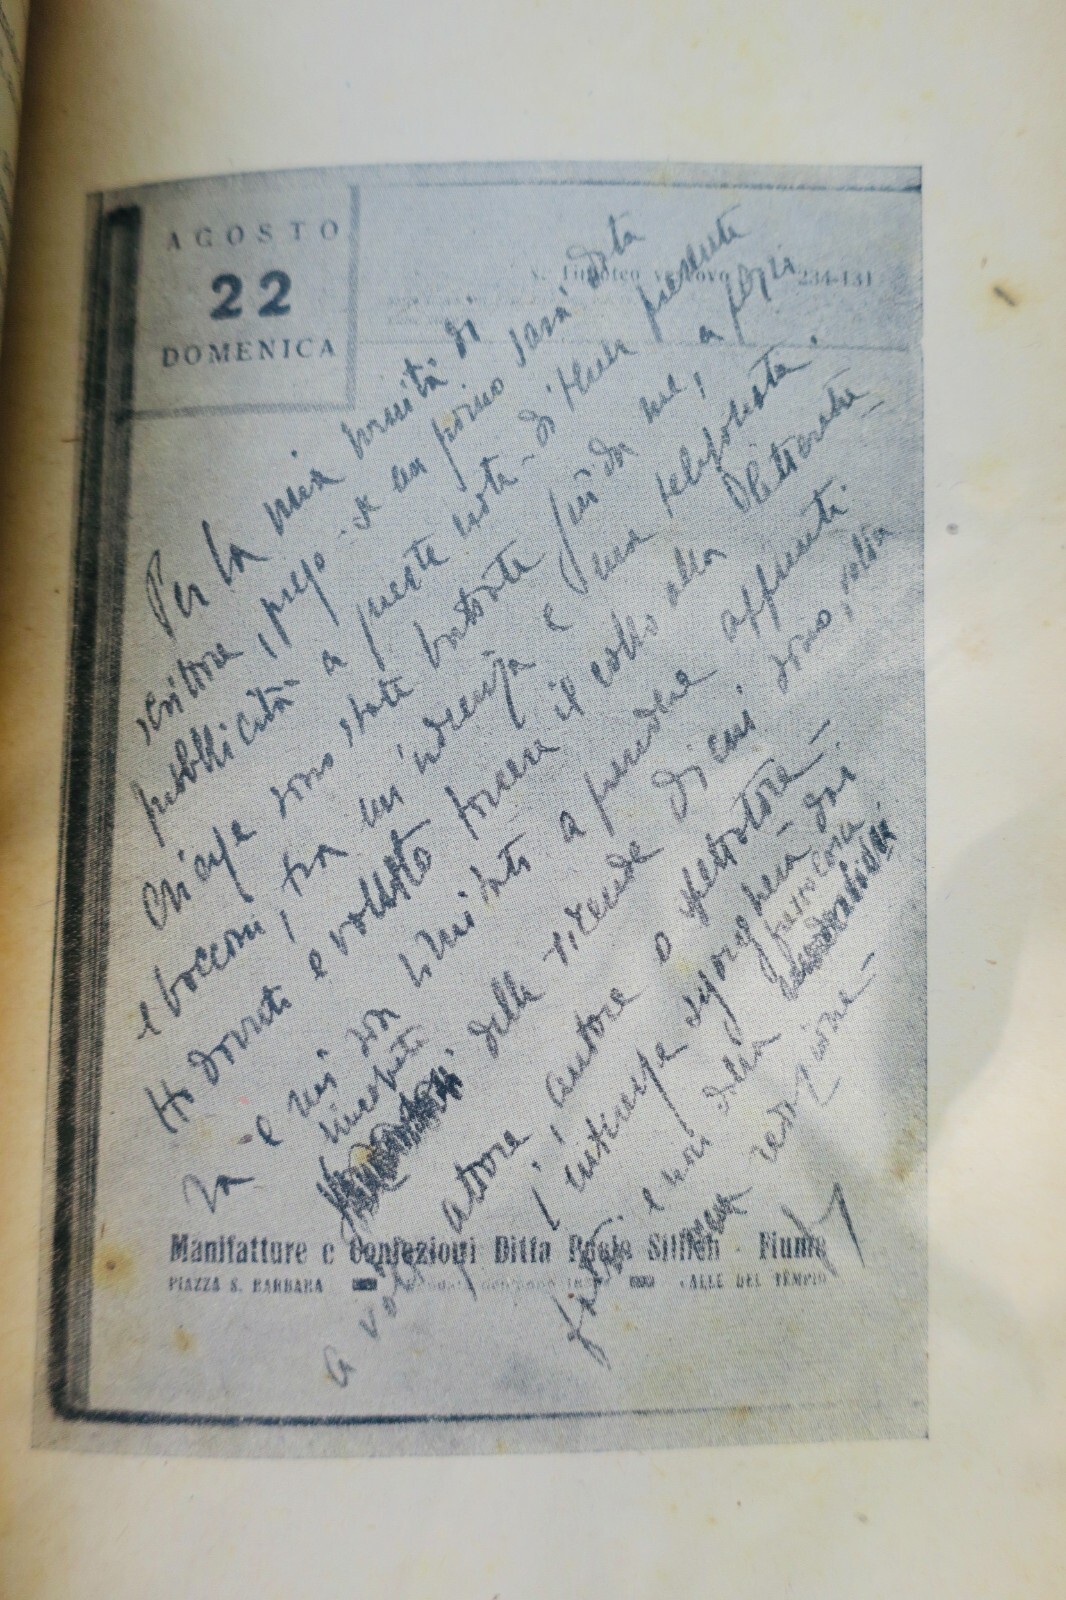 AGOSTO
22
DOMENICA
S. Timoteo vescovo 234-131
Per la mia vanità di
scrittore, prego - se un giorno sarà data
pubblicità a queste note - di tener presente
che sono state buttate giù da me, a pezzi
e bocconi, tra un'udienza e una telefonata.
Ho dovuto e voluto torcere il collo alla letteratu-
ra e mi son limitato a prendere appunti
incompleti delle vicende di cui sono, volta
a volta, attore autore o spettatore -
l'interesse sgorgherà dai
fatti e non dalla loro
vestizione -
Manifatture e Confezioni Ditta - Fiume
PIAZZA S. BARBARA CALLE DEL TEMPIO